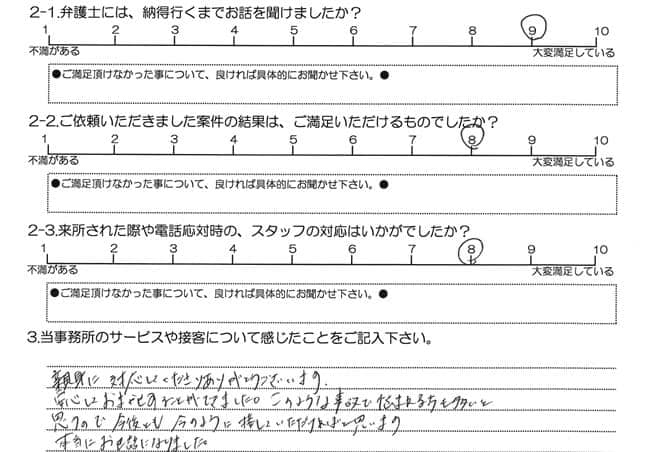 2-1.弁護士には、納得行くまでお話を聞けましたか？
1 2 3 4 5 6 7 8 9 10
不満がある 大変満足している
●ご満足頂けなかった事について、良ければ具体的にお聞かせ下さい。●
2-2.ご依頼いただきました案件の結果は、ご満足いただけるものでしたか？
1 2 3 4 5 6 7 8 9 10
不満がある 大変満足している
●ご満足頂けなかった事について、良ければ具体的にお聞かせ下さい。●
2-3.来所された際や電話応対時の、スタッフの対応はいかがでしたか？
1 2 3 4 5 6 7 8 9 10
不満がある 大変満足している
●ご満足頂けなかった事について、良ければ具体的にお聞かせ下さい。●
3.当事務所のサービスや接客について感じたことをご記入下さい。
親身に対応してくださりありがとうございます。
安心しておまかせすることができました。このような事故で悩まれる方も多いと
思うので今後とも今のように接していただければと思います
本当にお世話になりました。